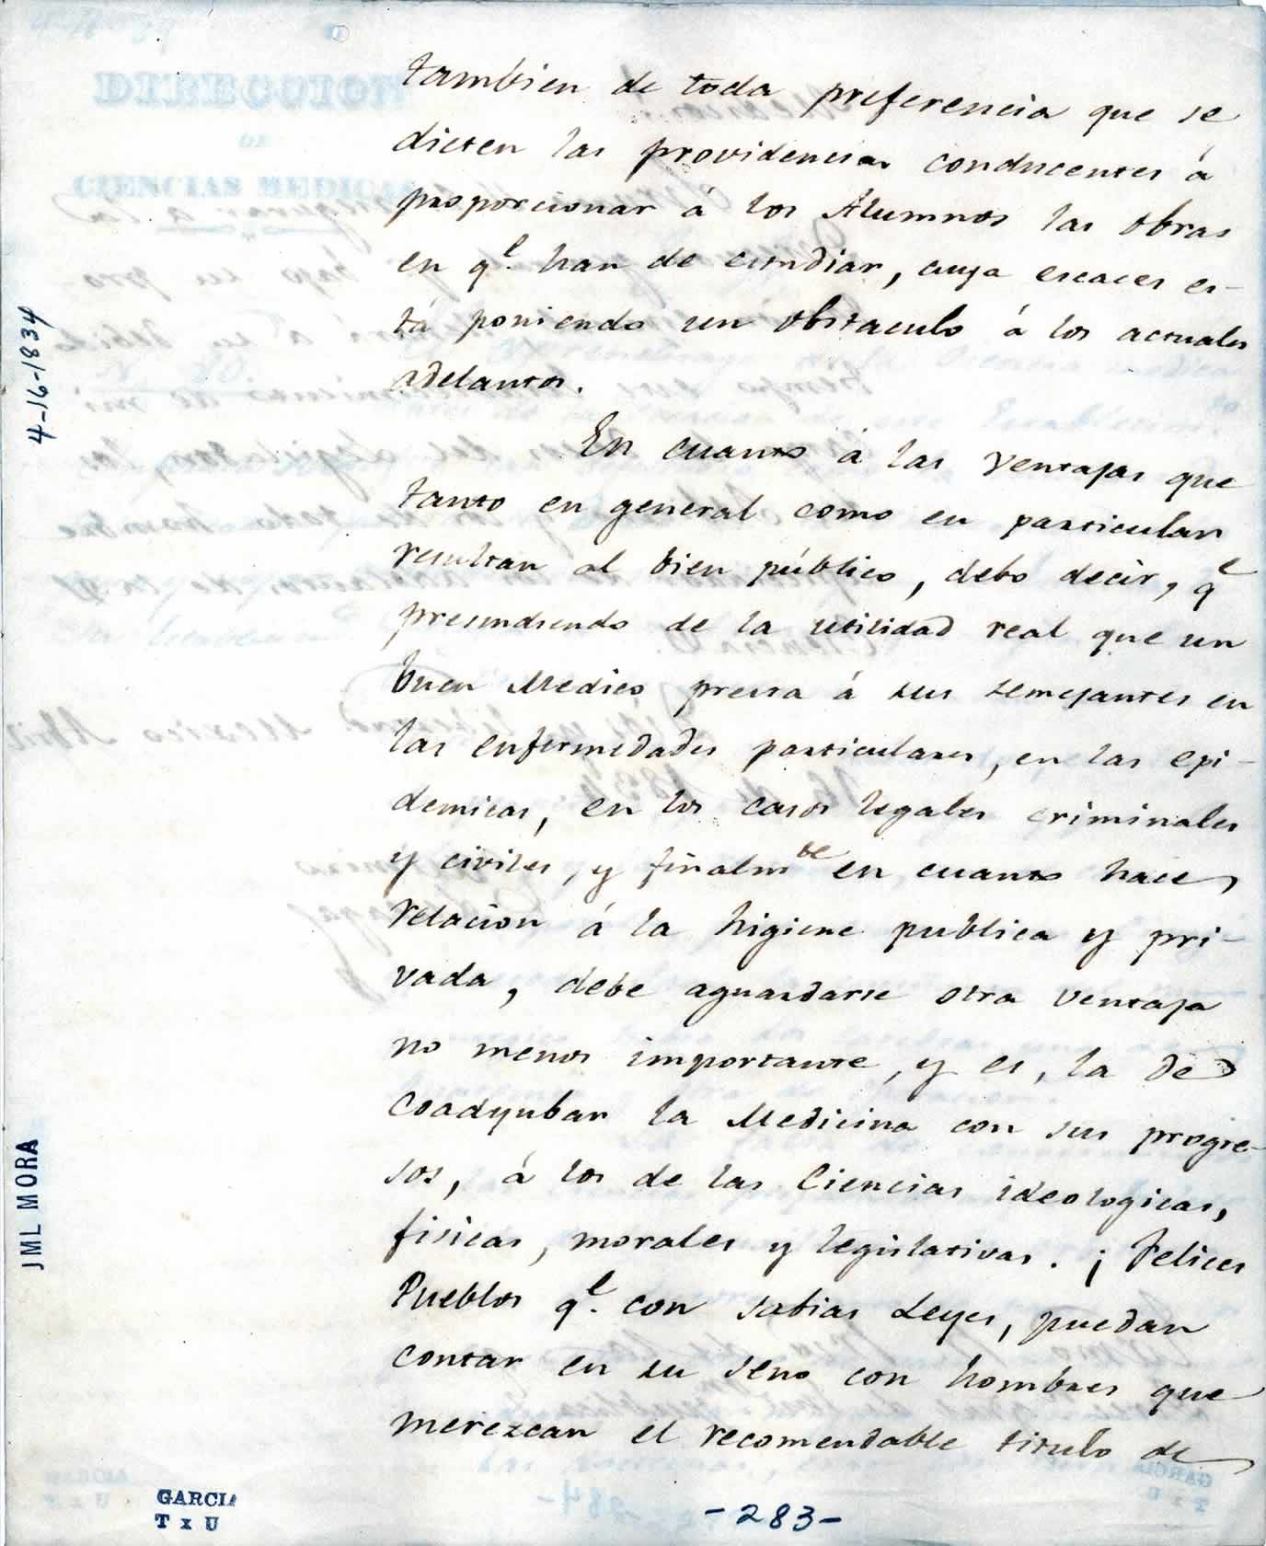 tambien de toda preferencia que se
dicten las providencias conducentes á
proporcionar á los Alumnos las obras
en q.e han de estudiar, cuya escaces es-
tá poniendo un obstaculo á los actuales
adelantos.
En cuanto á las ventajas que
tanto en general como en particular
resultan al bien público, debo decir, q.e
presindiendo de la utilidad real que un
buen Medico presta á sus semejantes en
las enfermedades particulares, en las epi-
demicas, en los casos legales criminales
y civiles, y finalmte en cuanto hace
relacion á la higiene publica y pri-
vada, debe aguardarse otra ventaja
no menos importante, y es, la de
coadyubar la Medicina con sus progre-
sos, á los de las Ciencias ideologicas,
fisicas, morales y legislativas. ¡Felices
Pueblos q.e con sabias Leyes, puedan
contar en su seno con hombres que
merezcan el recomendable titulo de
4-16-1834
JML MORA
GARCIA
T x U
-283-
DIRECCION
DE
CIENCIAS MEDICAS